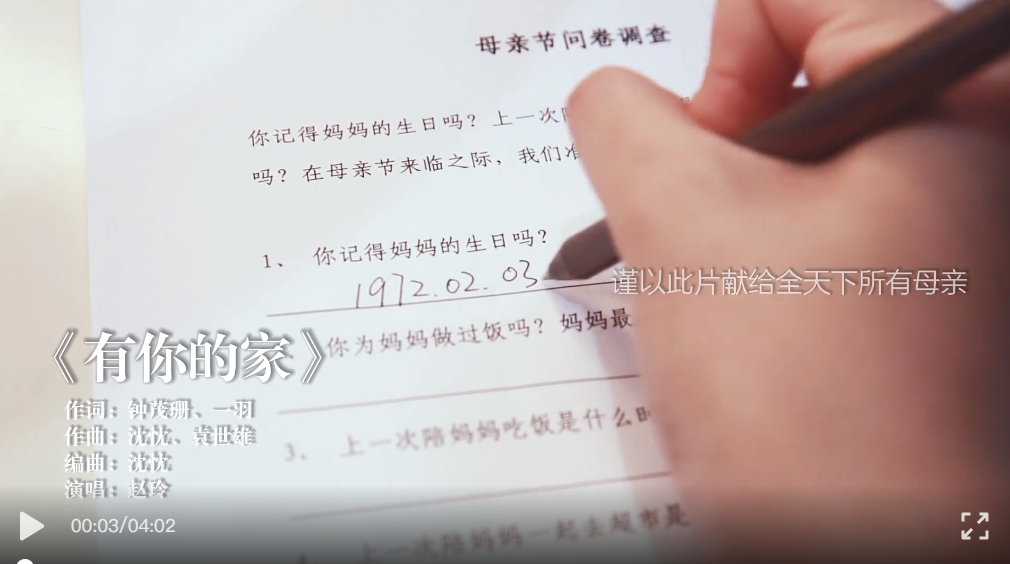 母亲节问卷调查
你记得妈妈的生日吗？上一次
吗？在母亲节来临之际，我们准
1、 你记得妈妈的生日吗？
1972.02.03
谨以此片献给全天下所有母亲
《有你的家》
你为妈妈做过饭吗？妈妈最
作词：钟茂珊、一羽
作曲：沈忱、袁世雄
3、 上一次陪妈妈吃饭是什么时
编曲：沈忱
演唱：赵玲
上一次陪妈妈一起去超市是
00:03/04:02